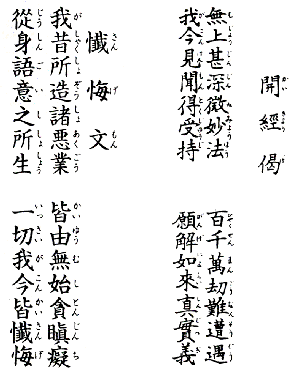 開經偈
無上甚深微妙法 百千萬劫難遭遇
我今見聞得受持 願解如來真實義
懺悔文
我昔所造諸惡業 皆由無始貪瞋癡
從身語意之所生 一切我今皆懺悔